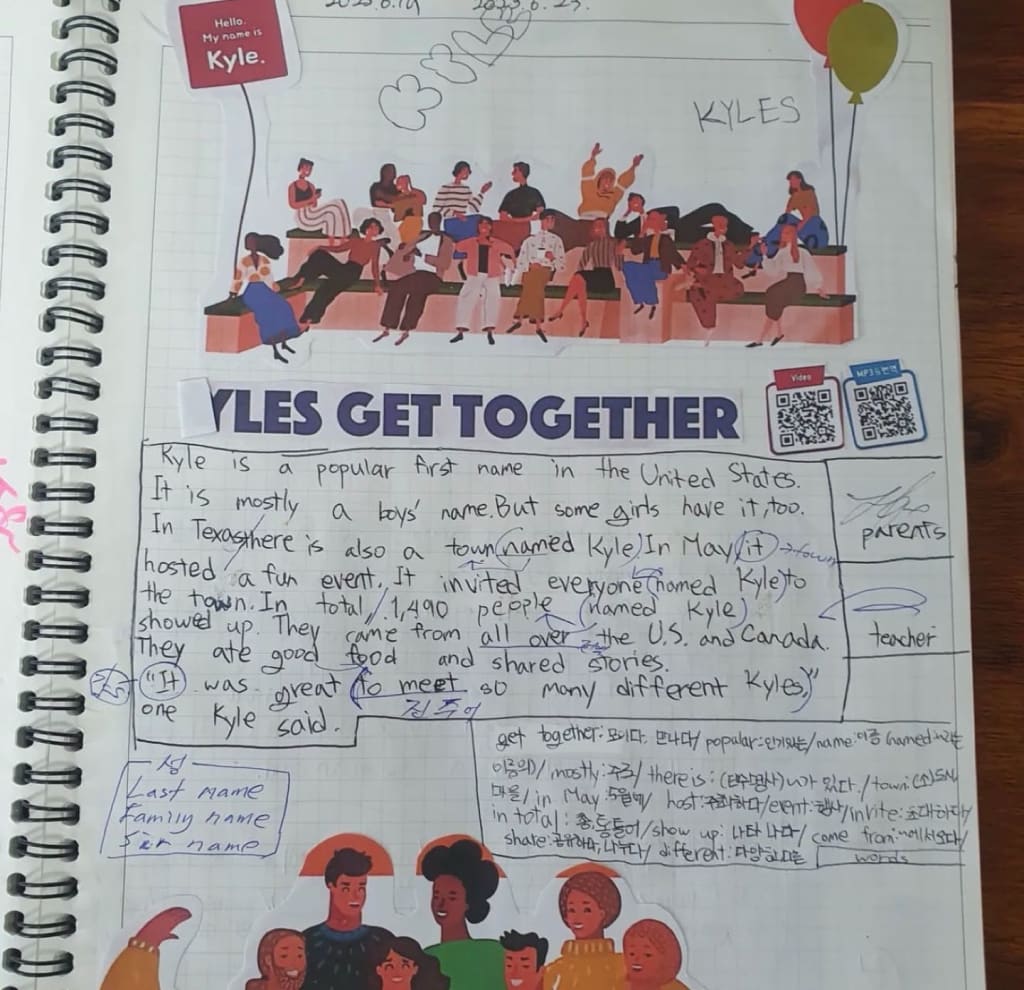 Hello.
My name is
Kyle.
KYLES
YLES GET TOGETHER
Video
MP3
Kyle is a popular first name in the United States.
It is mostly a boys' name. But some girls have it, too.
In Texas, there is also a town named Kyle. In May, it → town
hosted a fun event. It invited everyone named Kyle to
the town. In total, 1,490 people named Kyle
showed up. They came from all over the U.S. and Canada.
They ate good food and shared stories.
"It was great to meet so many different Kyles,"
one Kyle said.
진주어
parents
teacher
성
Last name
Family name
Sir name
get together: 모이다, 만나다 / popular: 인기있는 / name: 이름 (named ~라는
이름의) / mostly: 주로 / there is: (단수명사)~가 있다. / town: (소)도시,
마을 / in May: 5월에 / host: 주최하다 / event: 행사 / invite: 초대하다 /
in total: 총, 통틀어 / show up: 나타나다 / come from: ~에서 오다 /
share: 공유하다, 나누다 / different: 다양한, 다른
words